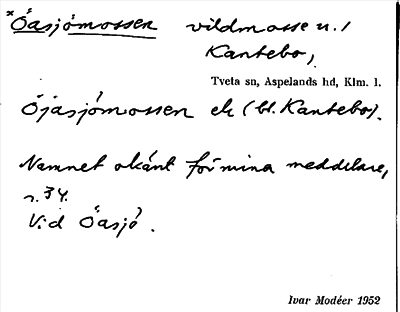 *Öasjömossen vildmosse u. /
Kantebo,
Tveta sn, Aspelands hd, Klm. l.
Öjasjömossen ek (bl. Kantebo).
Namnet okänt för mina meddelare,
r. 34.
Vid Öasjö.
Ivar Modéer 1952